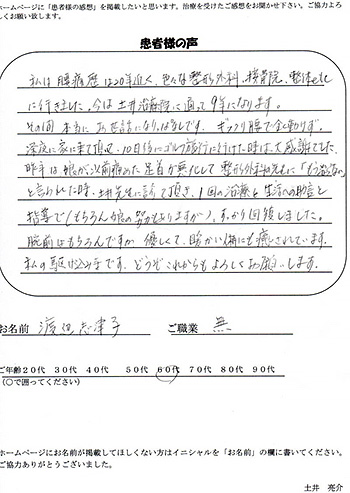 ホームページに「患者様の感想」を掲載したいと思います。治療を受けたご感想をお聞かせ下さい。ご協力よろ
しくお願い致します。
患者様の声
私は腰痛歴は20年近く、色々な整形外科、接骨院、整体など
に行きました。今は土井治療院に通って9年になります。
その間本当にお世話になりっぱなしです。ギックリ腰で全く動けず、
深夜に家に来て頂き、10日後にゴルフ旅行に行けた時は、大感謝でした。
昨年は娘が以前痛めた足首が悪化して整形外科の先生に「もう治らない」
と言われた時、土井先生に診て頂き、1回の治療と生活への助言と
指導で(もちろん娘の努力もありますが)、すっかり回復しました。
腕前はもちろんですが 優しくて、暖かい人柄にも癒されています。
私の駆け込み寺です。どうぞこれからもよろしくお願いします。
お名前 渡辺志津子 ご職業 無
ご年齢20代 30代 40代 50代 60代 70代 80代 90代
(○で囲ってください)
ホームページにお名前が掲載してほしくない方はイニシャルを「お名前」の欄に書いてください。
ご協力ありがとうございました。
土井 亮介